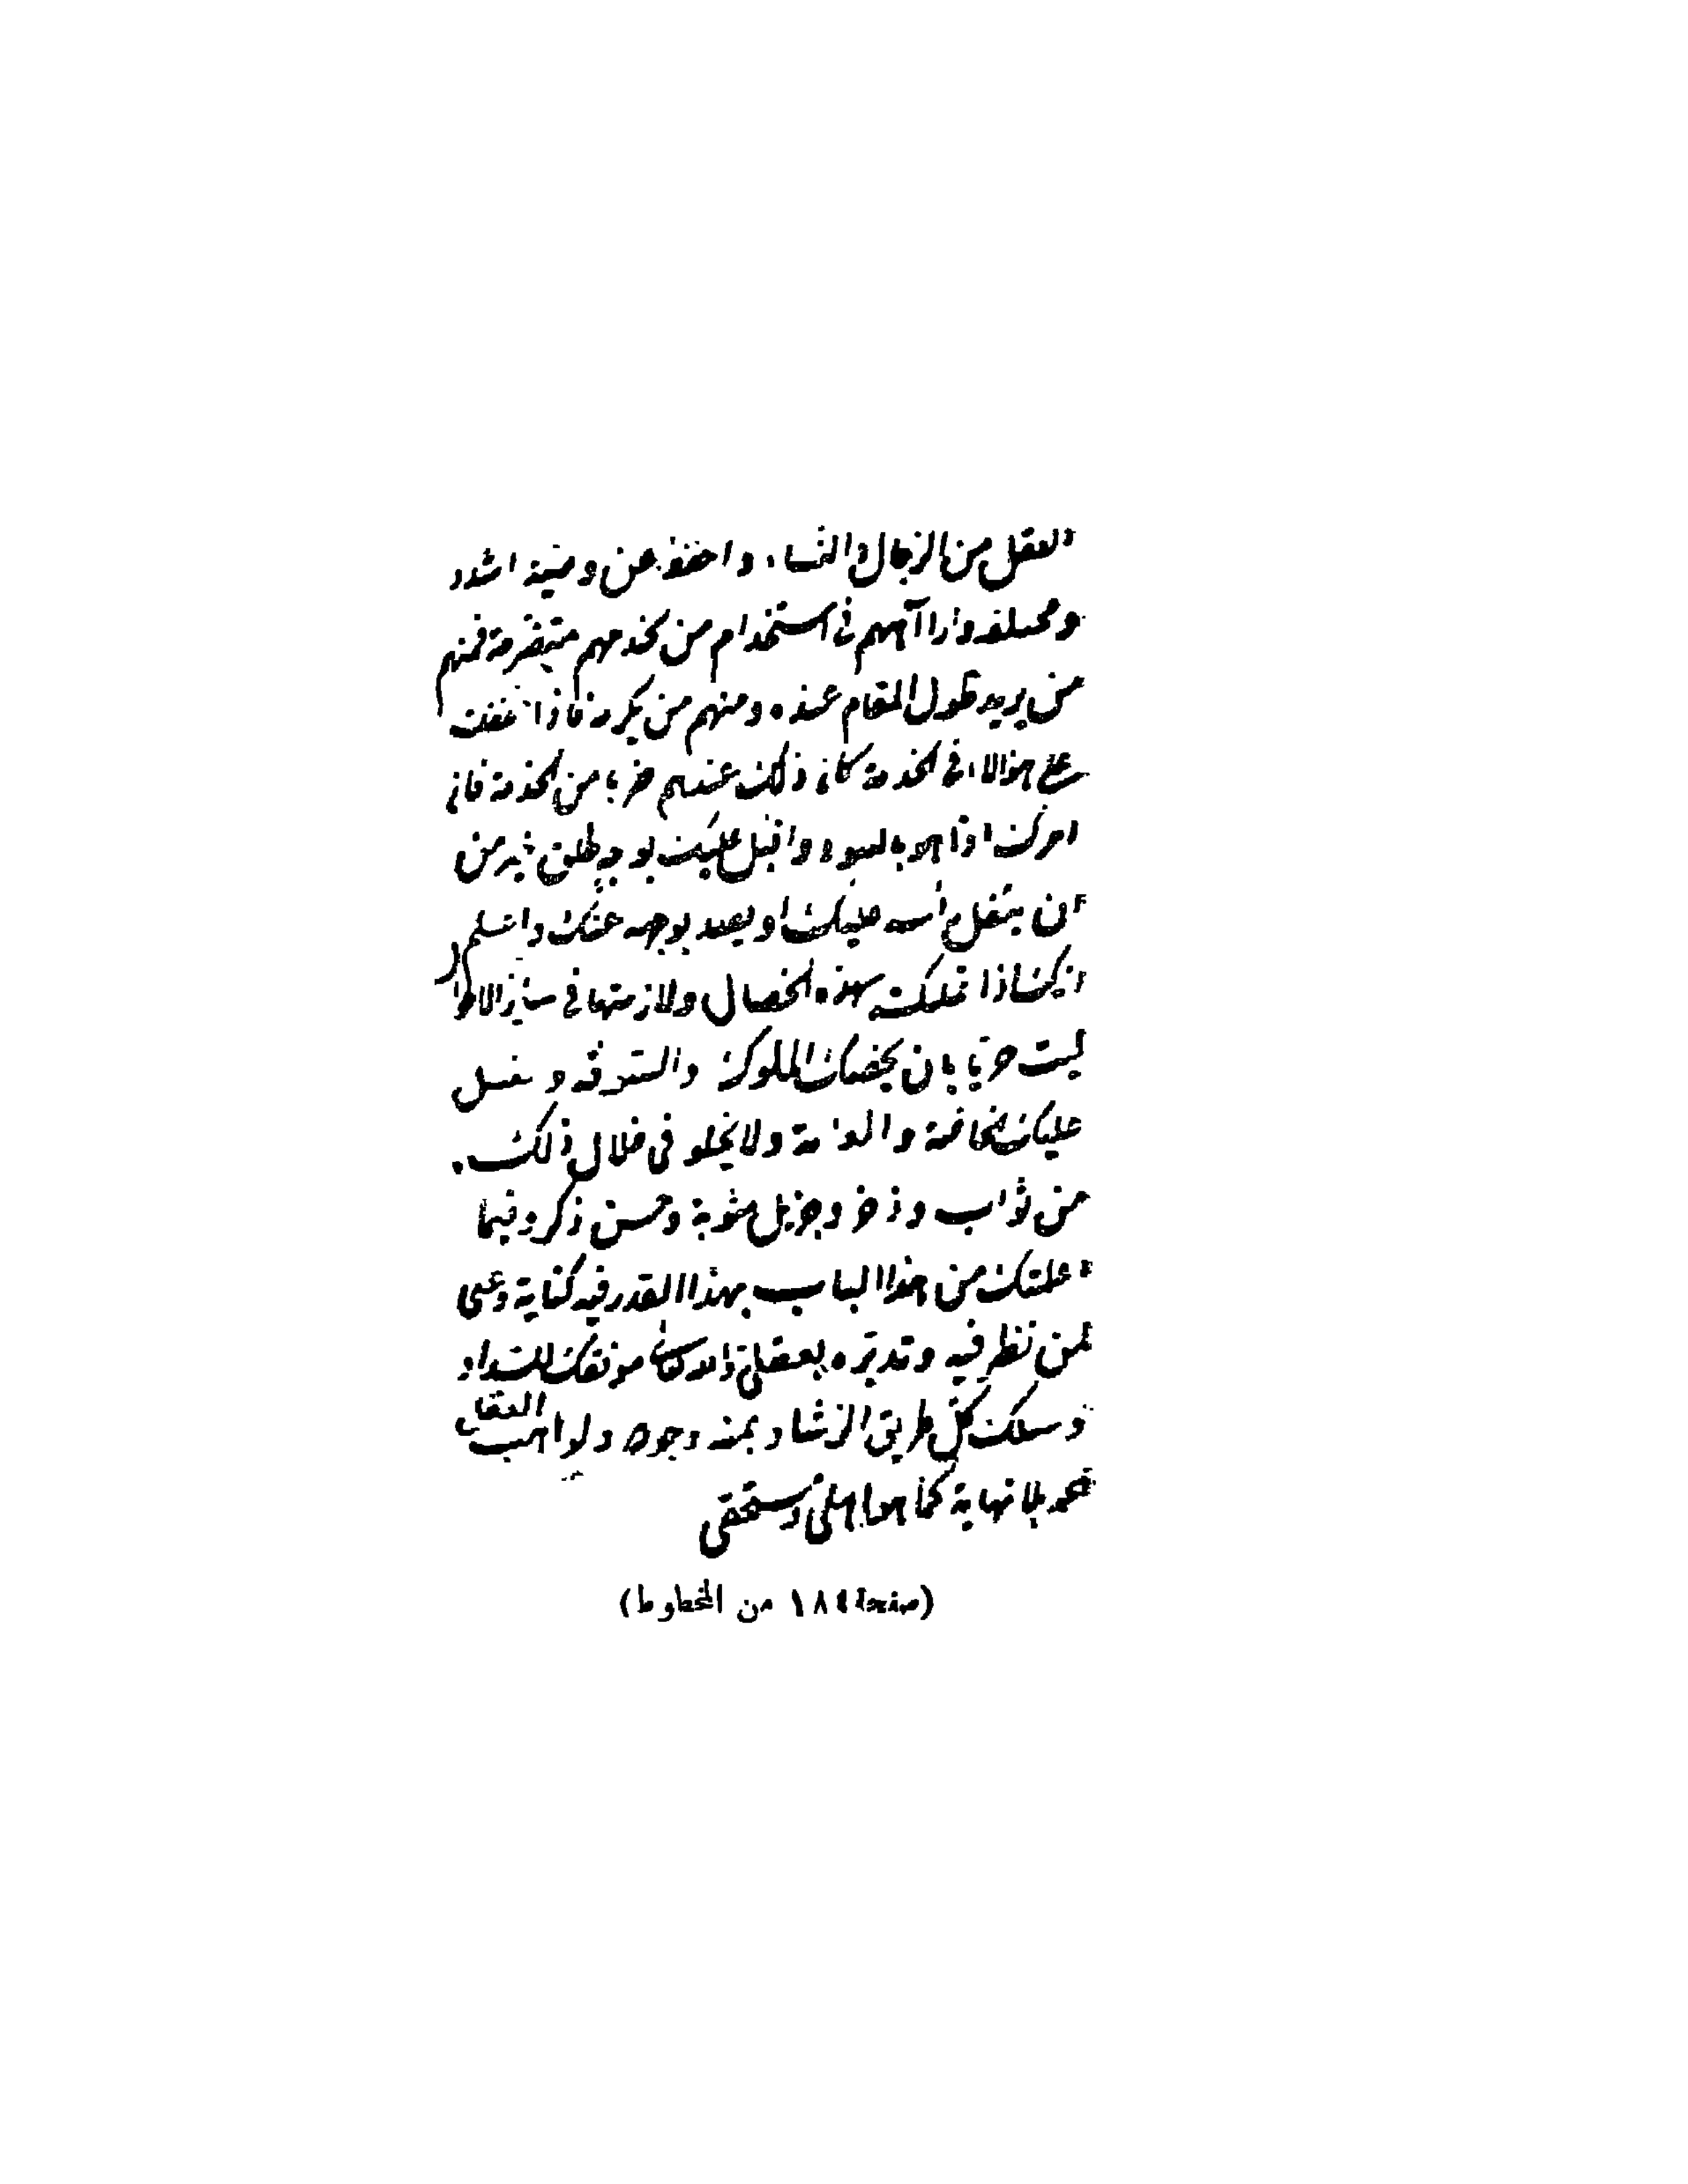 العقل من الرجال والنساء واحفظ عن وصية اشدد
واراآهم في استخدام من يخدمهم متفرقة فمنهم
من يريد طول المقام عنده ومنهم من يكره فاذا خففت
على هؤلاء في الخدمة كان ذلك عندهم ضربا من الخدمة فان
امرك اذا واقبل عليك بوجه طلق خير من
ان يثقل امره عليك او يصد بوجهه عنك واعلم
انك اذا تمسكت بهذه الخصال ولازمتها في سائر الاحوال
ليت حريا بان يخصك الملوك والسوقة و
عليك الخاصة والعامة ولا يخلو في خلال ذلك
من ثواب وذخر وجزيل مثوبة وحسن ذكر وفيما
اعلمتك من هذا الباب بهذا القدر فيه كفاية وغنى
لمن نظر فيه وتدبره بعقله والله كان موفقك للسداد
وسلك بك طريق الرشاد بمنه وجوده ولواهب العقل
حمد بلا نهاية كما هو اهله ومستحقه
(صفحة ١٨٤ من المخطوط)